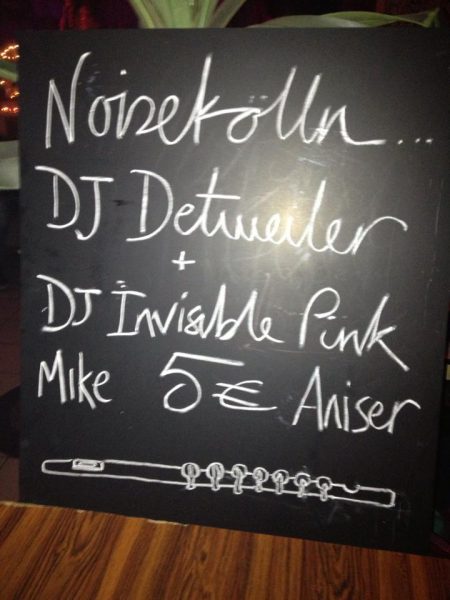 Noisekölln...
DJ Detweiler
+
DJ Invisible Pink
Mike 5€ Aniser